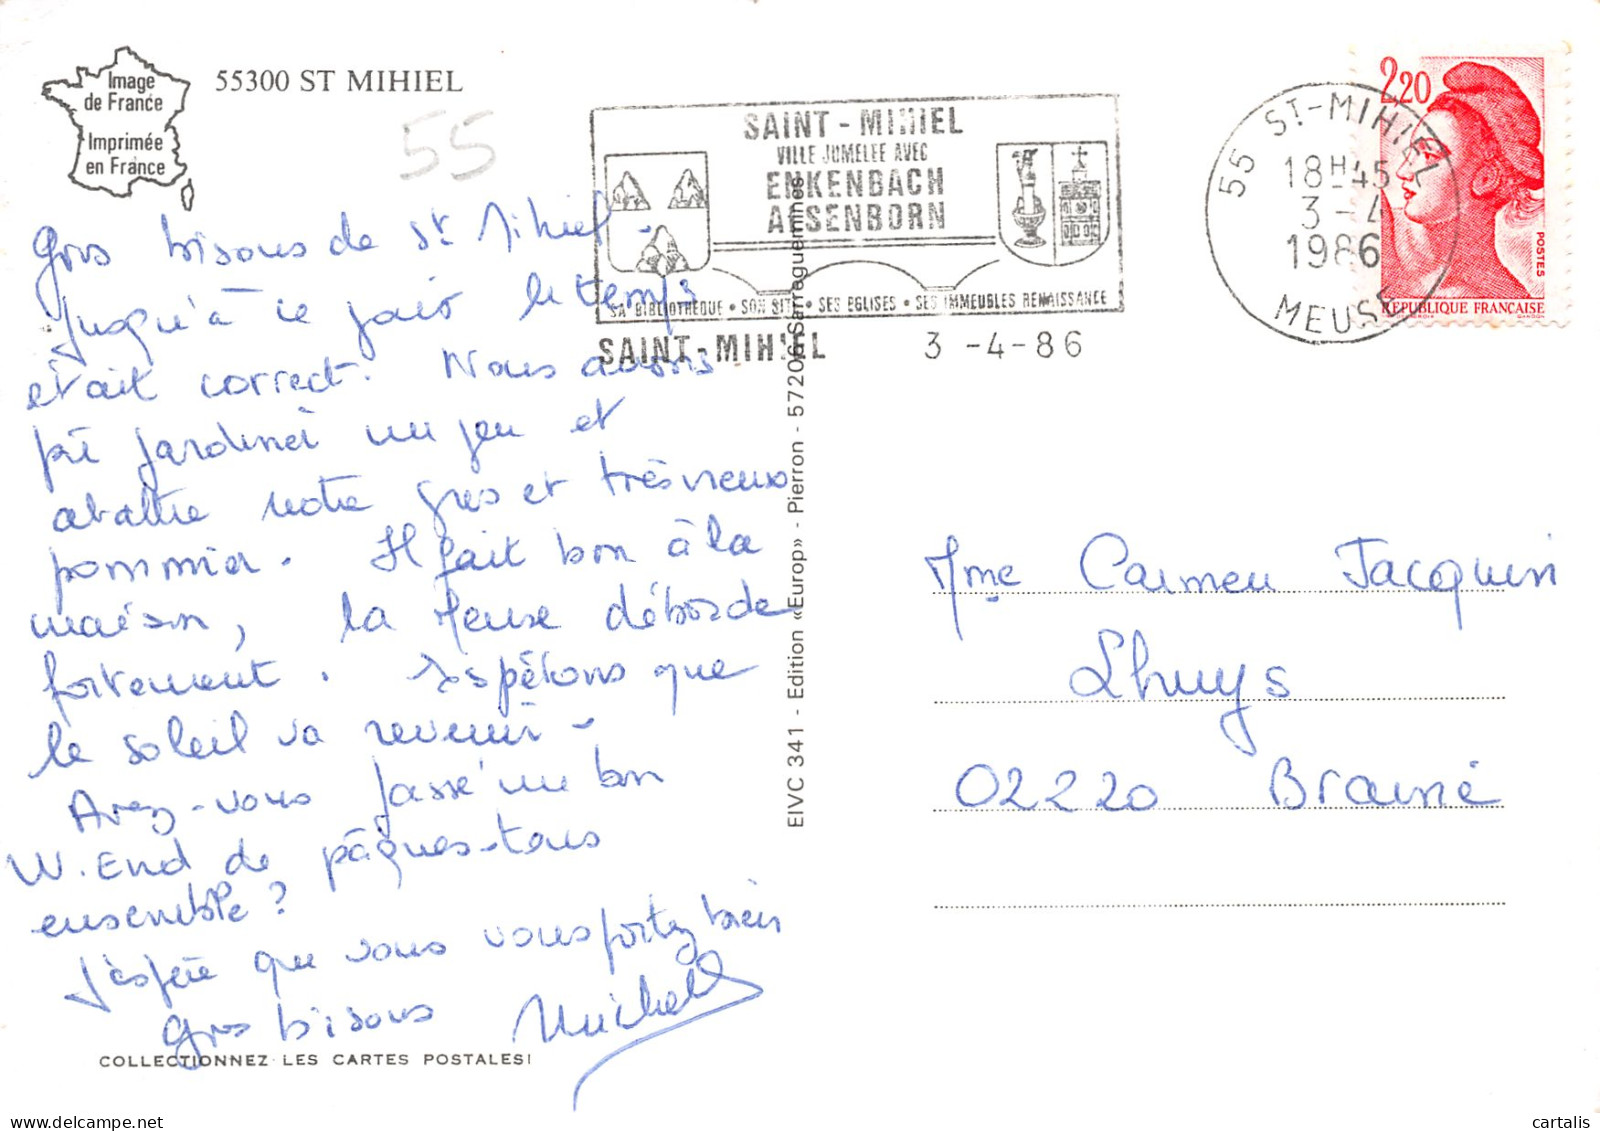 Image
de France
Imprimée
en France
55300 ST MIHIEL
55
SAINT - MIHIEL
VILLE JUMELEE AVEC
ENKENBACH
ALSENBORN
SA BIBLIOTHEQUE • SON SITE • SES EGLISES • SES IMMEUBLES RENAISSANCE
SAINT-MIHIEL 3 -4-86
55 ST-MIHIEL
18H45
3-4
1986
MEUSE
2,20
POSTES
REPUBLIQUE FRANÇAISE
Gros bisous de St Mihiel -
Jusqu'à ce jour le temps
était correct. Nous avons
pu jardiner un peu et
abattre notre gros et très vieux
pommier. Il fait bon à la
maison, la Meuse déborde
fortement. Espérons que
le soleil va revenir -
Avez-vous passé un bon
W.End de pâques tous
ensemble ?
J'espère que vous vous portez bien
Gros bisous Michel
COLLECTIONNEZ LES CARTES POSTALES!
EIVC 341 - Edition «Europ» - Pierron - 57206 Sarreguemines
Mme Carmen Jacquin
Lhuys
02220 Braine
cartalis
delcampe.net